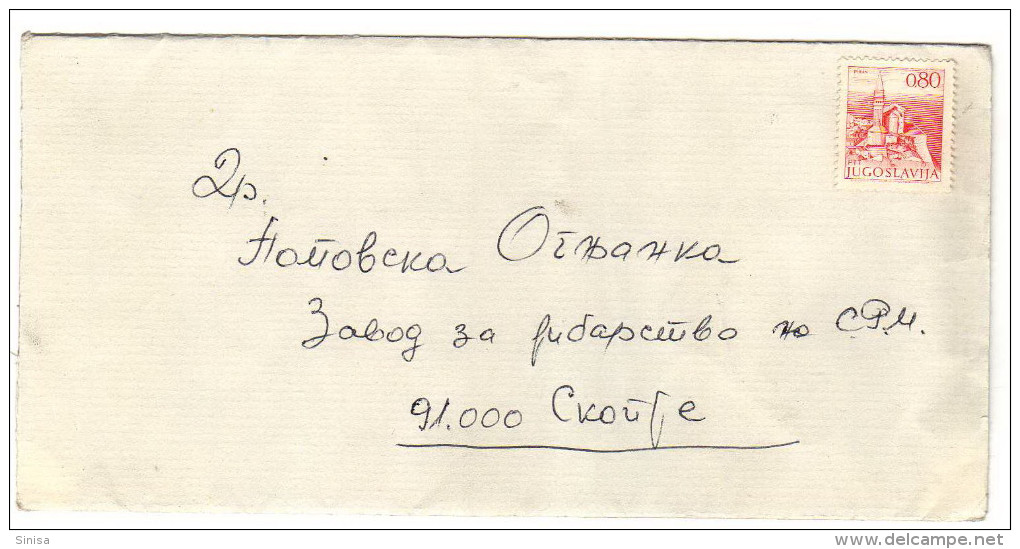 0.80
PTT
JUGOSLAVIJA
Др.
Поповска Огњанка
Завод за рибарство на СРМ.
91.000 Скопје
Sinisa
www.delcampe.net